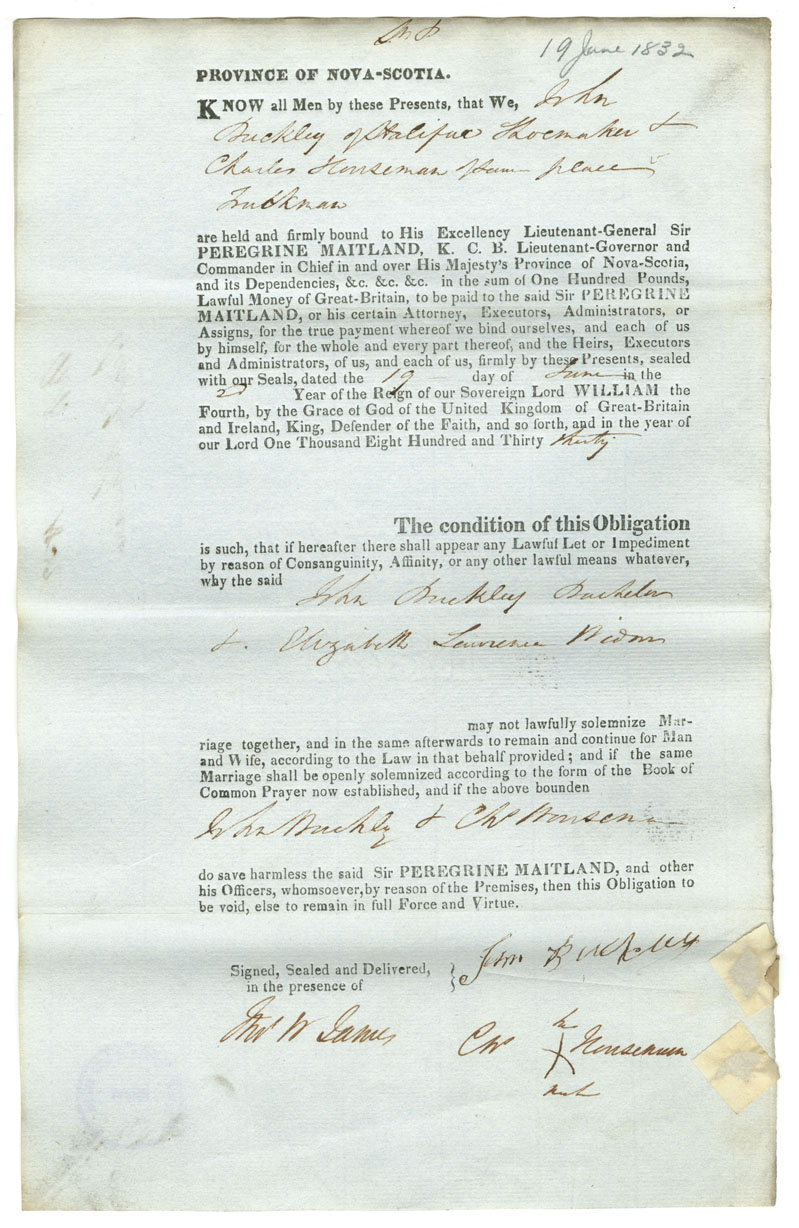 19 June 1832
PROVINCE OF NOVA-SCOTIA.
KNOW all Men by these Presents, that We, John
Buckley of Halifax Shoemaker &
Charles Houseman of same place
Truckman
are held and firmly bound to His Excellency Lieutenant-General Sir
PEREGRINE MAITLAND, K. C. B. Lieutenant-Governor and
Commander in Chief in and over His Majesty's Province of Nova-Scotia,
and its Dependencies, &c. &c. &c. in the sum of One Hundred Pounds,
Lawful Money of Great-Britain, to be paid to the said Sir PEREGRINE
MAITLAND, or his certain Attorney, Executors, Administrators, or
Assigns, for the true payment whereof we bind ourselves, and each of us
by himself, for the whole and every part thereof, and the Heirs, Executors
and Administrators, of us, and each of us, firmly by these Presents, sealed
with our Seals, dated the 19 day of June in the
2d Year of the Reign of our Sovereign Lord WILLIAM the
Fourth, by the Grace of God of the United Kingdom of Great-Britain
and Ireland, King, Defender of the Faith, and so forth, and in the year of
our Lord One Thousand Eight Hundred and Thirty thirty
The condition of this Obligation
is such, that if hereafter there shall appear any Lawful Let or Impediment
by reason of Consanguinity, Affinity, or any other lawful means whatever,
why the said
John Buckley Bachelor
&. Elizabeth Lawrence Widow
may not lawfully solemnize Mar-
riage together, and in the same afterwards to remain and continue for Man
and Wife, according to the Law in that behalf provided; and if the same
Marriage shall be openly solemnized according to the form of the Book of
Common Prayer now established, and if the above bounden
John Buckley & Chs Houseman
do save harmless the said Sir PEREGRINE MAITLAND, and other
his Officers, whomsoever, by reason of the Premises, then this Obligation to
be void, else to remain in full Force and Virtue.
Signed, Sealed and Delivered,
in the presence of
John Buckley
Thos W James
his
Chs X Houseman
mark